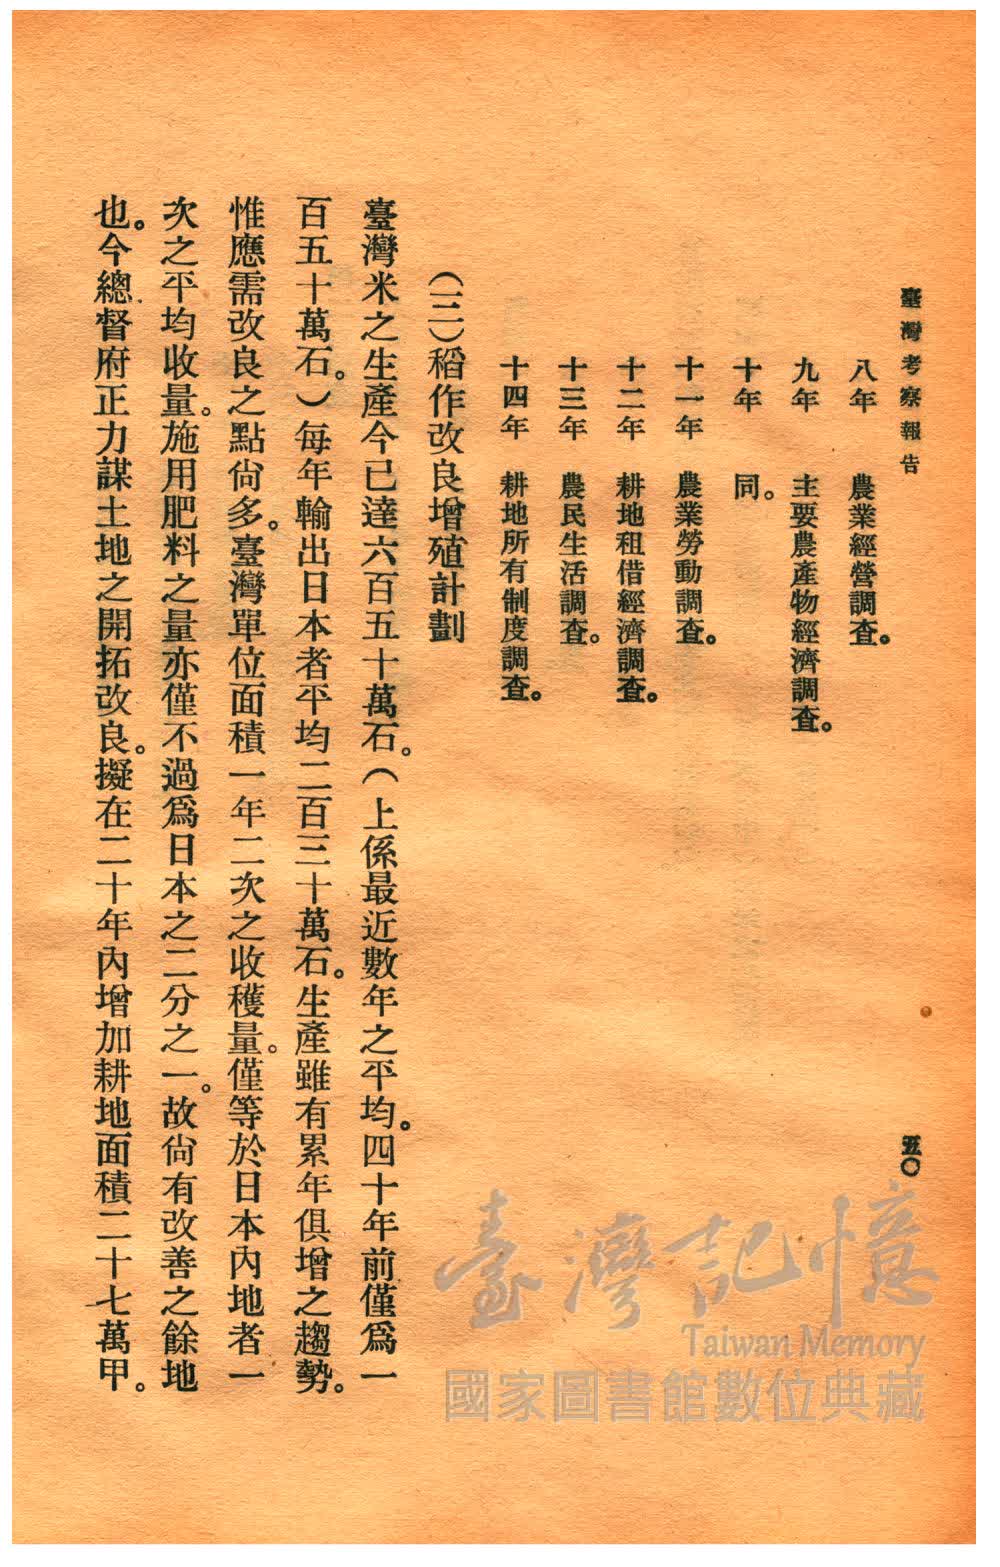 臺灣考察報告
五〇
八年　農業經營調查。
九年　主要農產物經濟調查。
十年　同。
十一年　農業勞動調查。
十二年　耕地租借經濟調查。
十三年　農民生活調查。
十四年　耕地所有制度調查。
(三)稻作改良增殖計劃
臺灣米之生產今已達六百五十萬石。(上係最近數年之平均。四十年前僅爲一
百五十萬石。)每年輸出日本者平均二百三十萬石。生產雖有累年俱增之趨勢。
惟應需改良之點尙多。臺灣單位面積一年二次之收穫量。僅等於日本內地者一
次之平均收量。施用肥料之量亦僅不過爲日本之二分之一。故尙有改善之餘地
也。今總督府正力謀土地之開拓改良。擬在二十年內增加耕地面積二十七萬甲。
臺灣記憶
Taiwan Memory
國家圖書館數位典藏